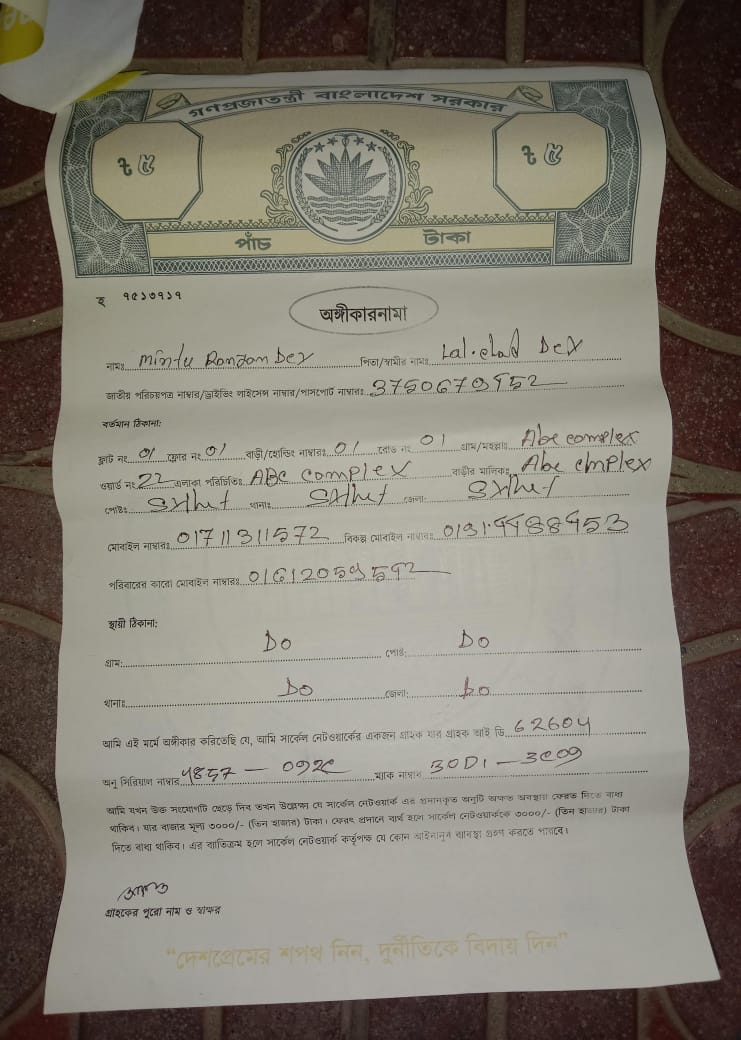 গণপ্রজাতন্ত্রী বাংলাদেশ সরকার
৳ ৫ ৳ ৫
পাঁচ টাকা
হ ৭৫১৩৭১৭
অঙ্গীকারনামা
নামঃ Mintu Ranjan Dey পিতা/স্বামীর নামঃ Lal. Dey
জাতীয় পরিচয়পত্র নাম্বার/ড্রাইভিং লাইসেন্স নাম্বার/পাসপোর্ট নাম্বারঃ 3750679952
বর্তমান ঠিকানা:
ফ্লাট নং 01 ফ্লোর নং 01 বাড়ী/হোল্ডিং নাম্বারঃ 01 রোড নং 01 গ্রাম/মহল্লাঃ Abc complex
ওয়ার্ড নং 22 এলাকা পরিচিতিঃ ABC complex বাড়ীর মালিকঃ Abc cmplex
পোষ্টঃ Sylhet থানাঃ Sylhet জেলা: Sylhet
মোবাইল নাম্বারঃ 01711311572 বিকল্প মোবাইল নাম্বারঃ
পরিবারের কারো মোবাইল নাম্বারঃ 01612059592
স্থায়ী ঠিকানা:
গ্রাম: Do পোষ্ট: Do
থানাঃ Do জেলা: Do
আমি এই মর্মে অঙ্গীকার করিতেছি যে, আমি সার্কেল নেটওয়ার্কের একজন গ্রাহক যার গ্রাহক আই ডি 62604
অনু সিরিয়াল নাম্বার ম্যাক নাম্বার 30D1 - 3C09
আমি যখন উক্ত সংযোগটি ছেড়ে দিব তখন উল্লেখ্য যে সার্কেল নেটওয়ার্ক এর প্রদানকৃত অনুটি অক্ষত অবস্থায় ফেরত দিতে বাধ্য
থাকিব। যার বাজার মূল্য ৩০০০/- (তিন হাজার) টাকা। ফেরৎ প্রদানে ব্যর্থ হলে সার্কেল নেটওয়ার্ককে ৩০০০/- (তিন হাজার) টাকা
দিতে বাধ্য থাকিব। এর ব্যতিক্রম হলে সার্কেল নেটওয়ার্ক কর্তৃপক্ষ যে কোন আইনানুগ ব্যবস্থা গ্রহণ করতে পারবে।
গ্রাহকের পুরো নাম ও স্বাক্ষর
"দেশপ্রেমের শপথ নিন, দুর্নীতিকে বিদায় দিন"